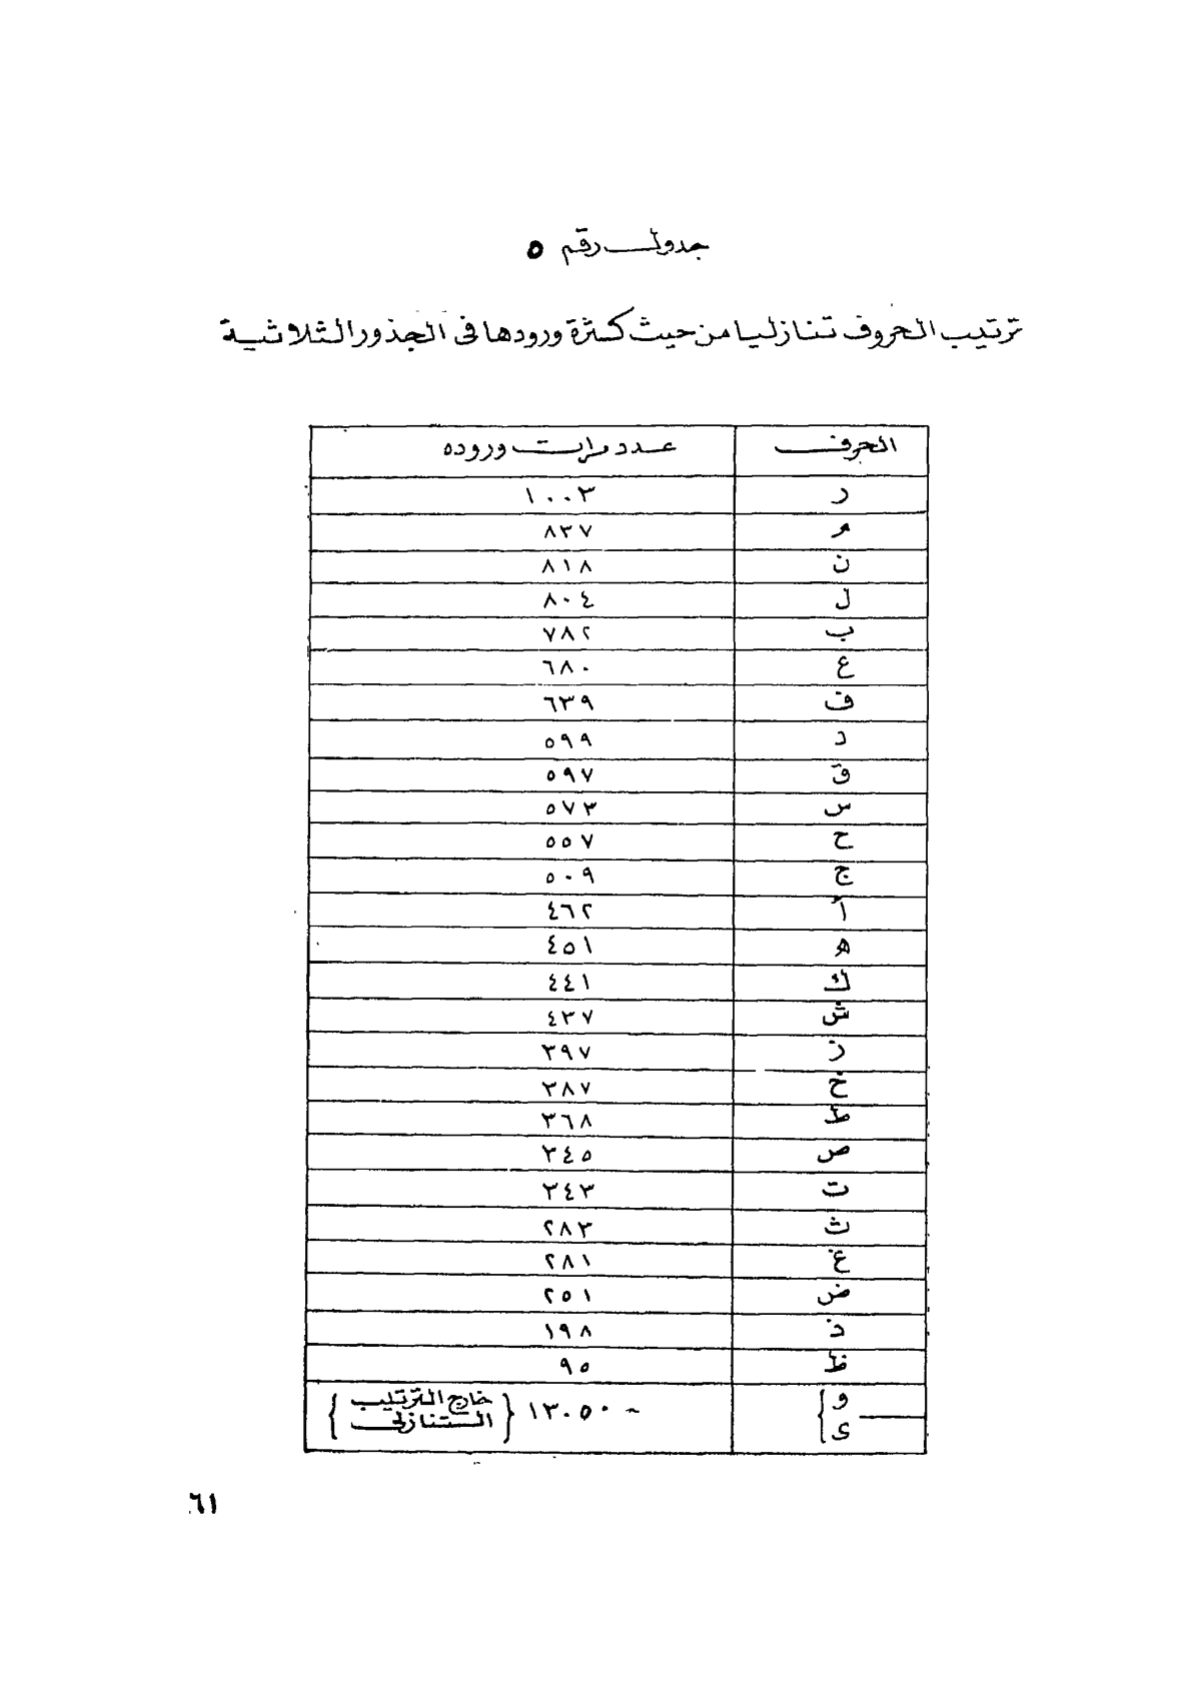 جدول رقم ٥
ترتيب الحروف تنازليا من حيث كثرة ورودها فى الجذور الثلاثية
الحرف عدد مرات وروده
ر ١٠٠٣
م ٨٣٧
ن ٨١٨
ل ٨٠٤
ب ٧٨٢
ع ٦٨٠
ف ٦٣٩
د ٥٩٩
ق ٥٩٧
س ٥٧٣
ح ٥٥٧
ج ٥٠٩
أ ٤٦٢
ه ٤٥١
ك ٤٤١
ش ٤٣٧
ز ٣٩٧
خ ٣٨٧
ط ٣٦٨
ص ٣٤٥
ت ٣٤٣
ث ٢٨٣
غ ٢٨١
ض ٢٥١
ذ ١٩٨
ظ ٩٥
و
ى
١٣٠٥ .-
{ خارج الترتيب
التنازلى }
٦١